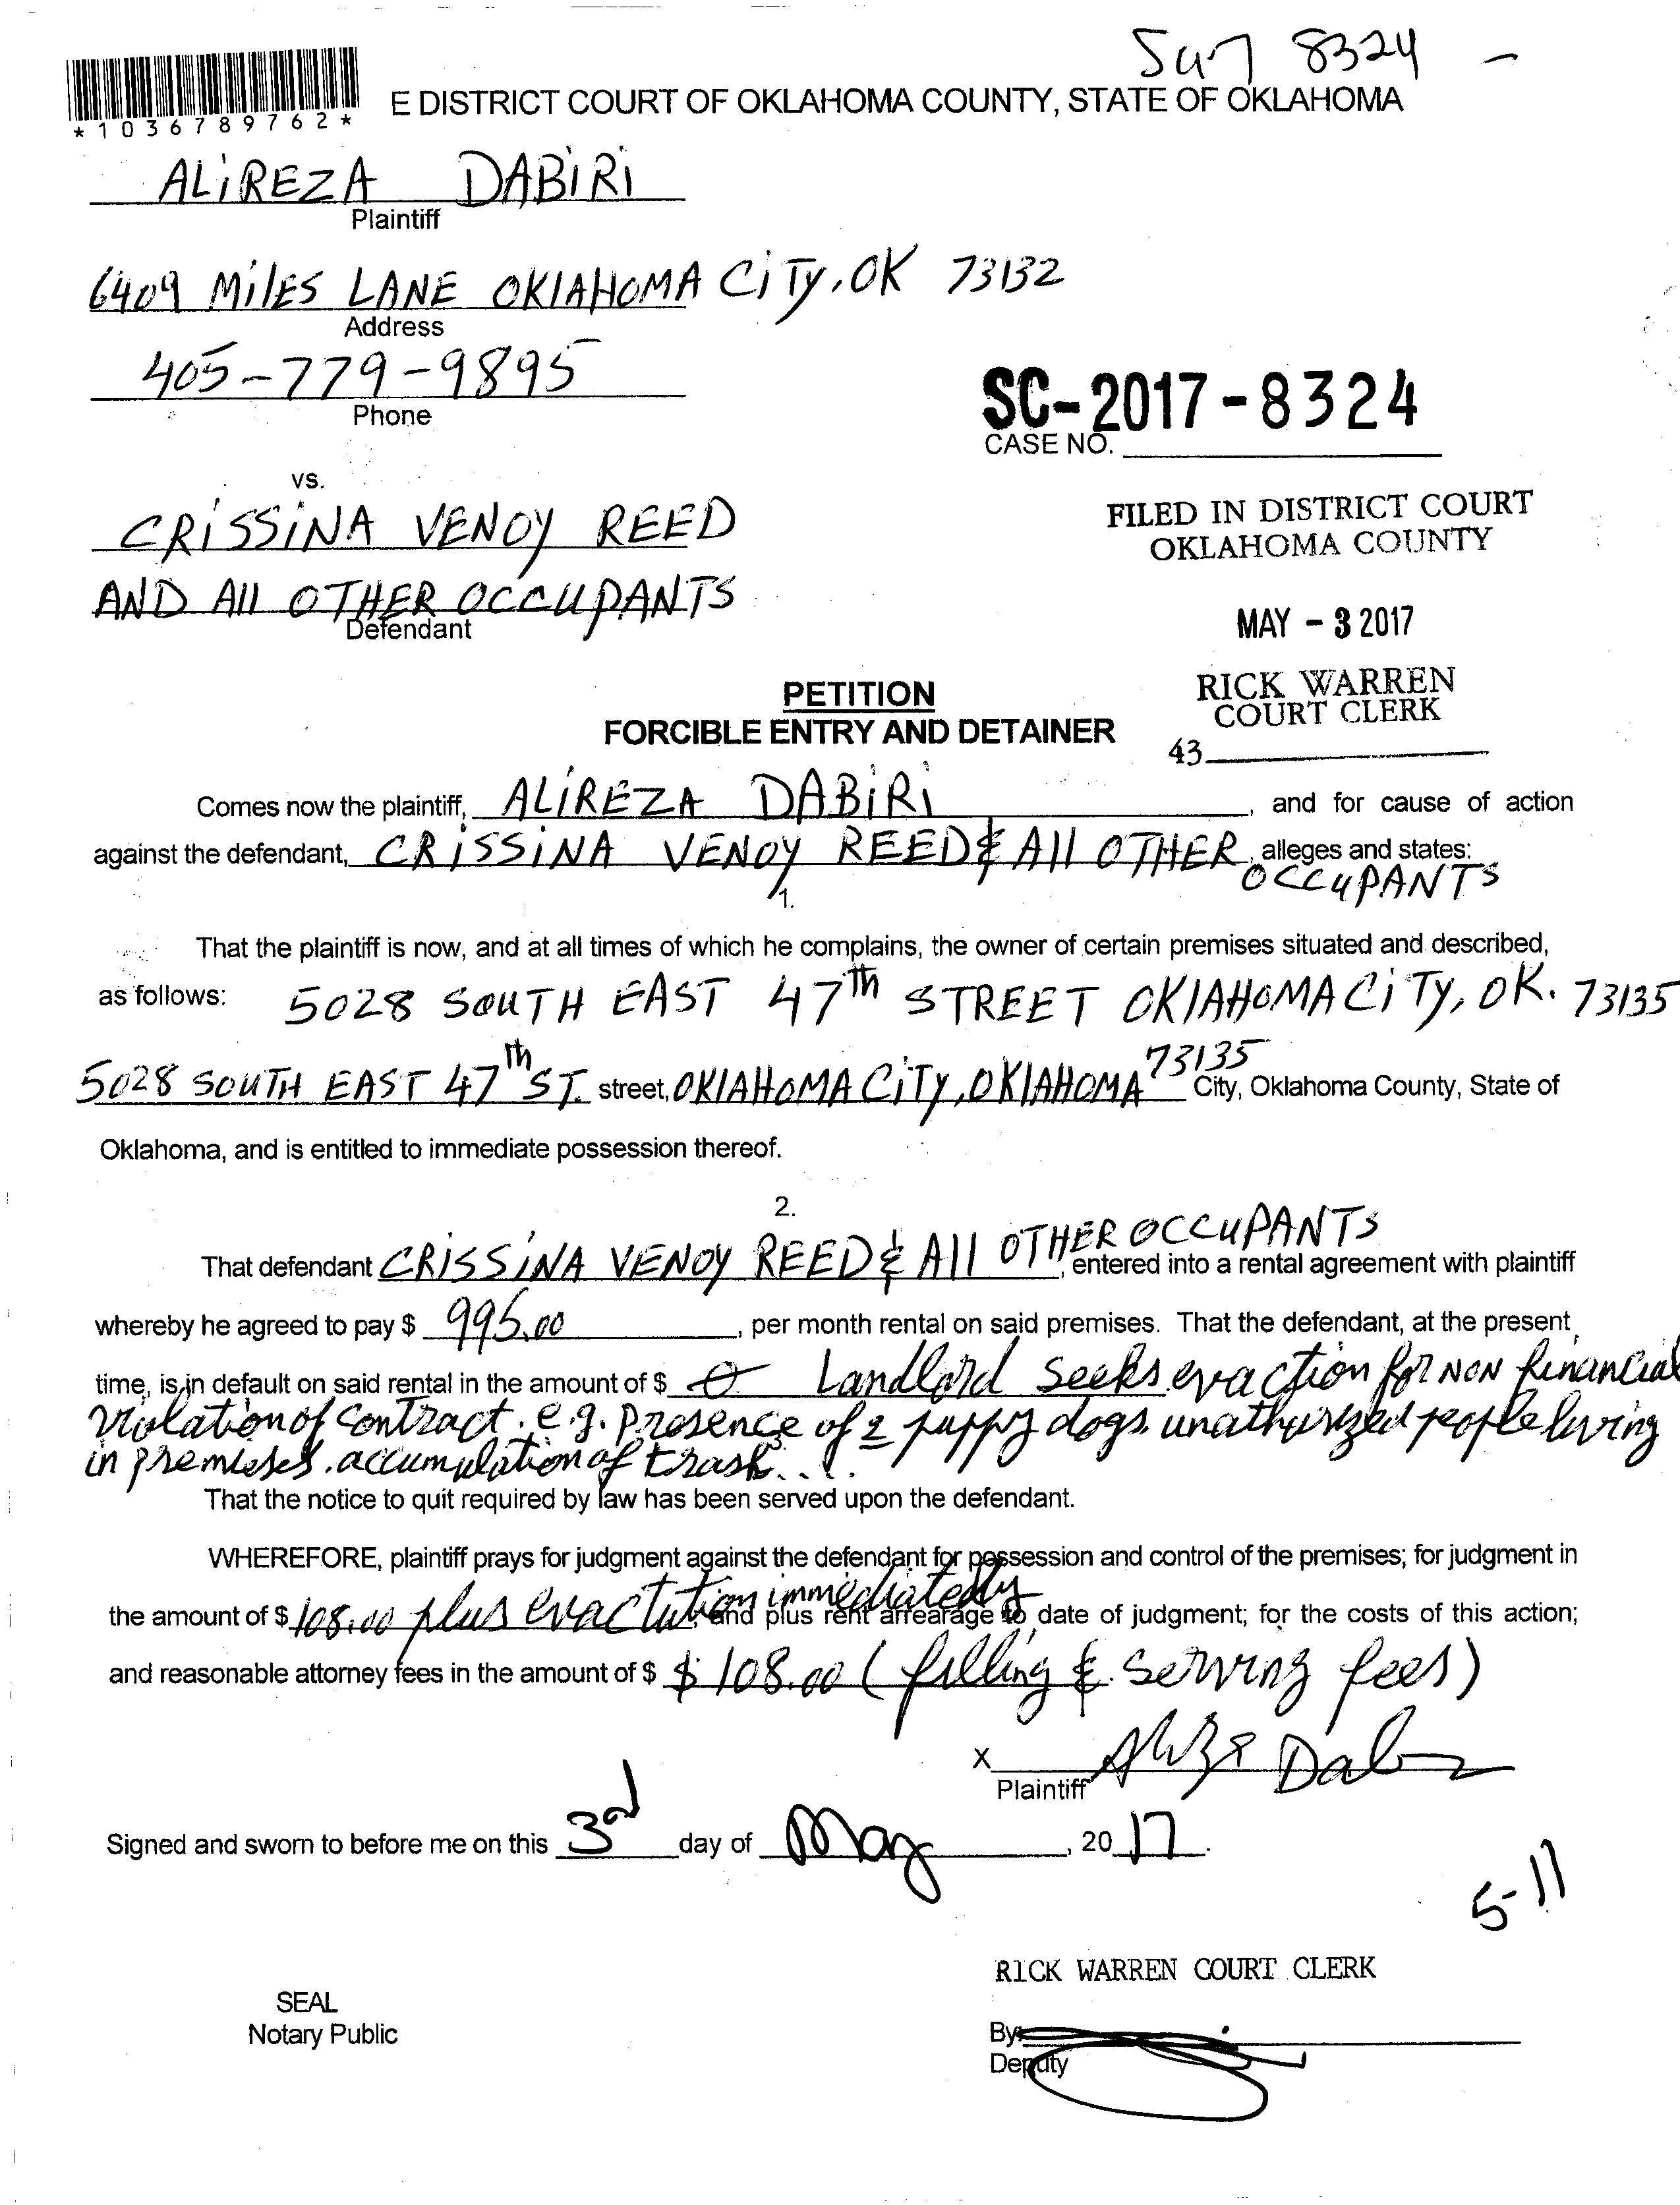 8324 -
*1036789762*
E DISTRICT COURT OF OKLAHOMA COUNTY, STATE OF OKLAHOMA
ALiREZA DABiRi
Plaintiff
6409 MilES LANE OKlAHOMA CiTy, OK 73132
Address
405-779-9895
Phone
SC-2017-8324
CASE NO.
vs.
CRiSSiNA VENOY REED
AND All OTHER OCCUPANTS
Defendant
FILED IN DISTRICT COURT
OKLAHOMA COUNTY
MAY - 3 2017
RICK WARREN
COURT CLERK
43
PETITION
FORCIBLE ENTRY AND DETAINER
Comes now the plaintiff, ALiREZA DABiRi, and for cause of action
against the defendant, CRiSSiNA VENOY REED & All OTHER, alleges and states:
OCCUPANTS
1.
That the plaintiff is now, and at all times of which he complains, the owner of certain premises situated and described,
as follows: 5028 SOUTH EAST 47th STREET OKlAHOMA CiTy, OK. 73135
5028 SOUTH EAST 47th ST. street, OKlAHOMA CiTy, OKlAHOMA 73135 City, Oklahoma County, State of
Oklahoma, and is entitled to immediate possession thereof.
2.
That defendant CRiSSiNA VENOY REED & All OTHER OCCUPANTS, entered into a rental agreement with plaintiff
whereby he agreed to pay $ 995.00, per month rental on said premises. That the defendant, at the present
time, is in default on said rental in the amount of $ 0 Landlord seeks evaction for NON financial
violation of contract. e.g. presence of 2 puppy dogs. unathurized people living
in premises. accumulation of trash....
3.
That the notice to quit required by law has been served upon the defendant.
WHEREFORE, plaintiff prays for judgment against the defendant for possession and control of the premises; for judgment in
the amount of $ 108.00 plus evactution immediatedly, and plus rent arrearage to date of judgment; for the costs of this action;
and reasonable attorney fees in the amount of $ $ 108.00 (filling & serving fees)
X
Plaintiff
Signed and sworn to before me on this 3rd day of May, 20 17.
5-11
RICK WARREN COURT CLERK
SEAL
Notary Public
By:
Deputy